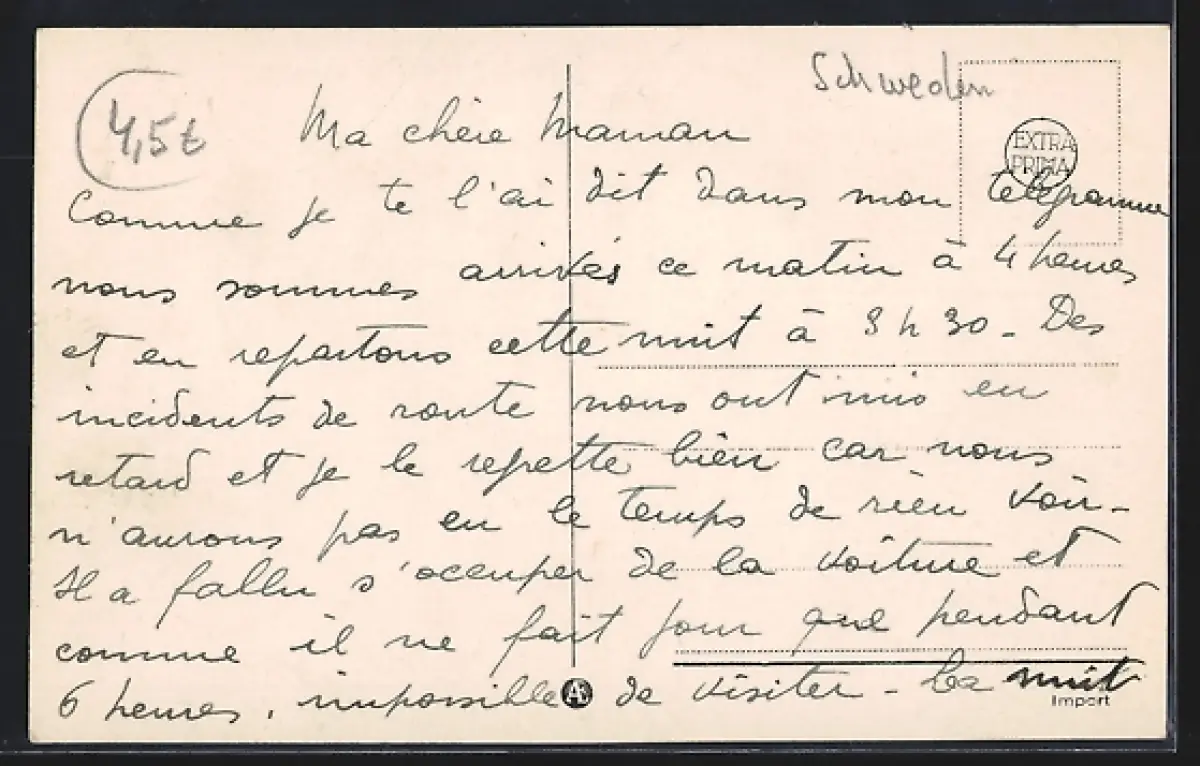 Schweden
4,5€
EXTRA
PRIMA
Ma chère Maman
Comme je te l'ai dit dans mon télégramme
nous sommes arrivés ce matin à 4 heures
et en repartons cette nuit à 3 h 30 - Des
incidents de route nous ont mis en
retard et je le regrette bien car nous
n'aurons pas eu le temps de rien voir -
Il a fallu s'occuper de la voiture et
comme il ne fait jour que pendant
6 heures, impossible de visiter - La nuit
Import